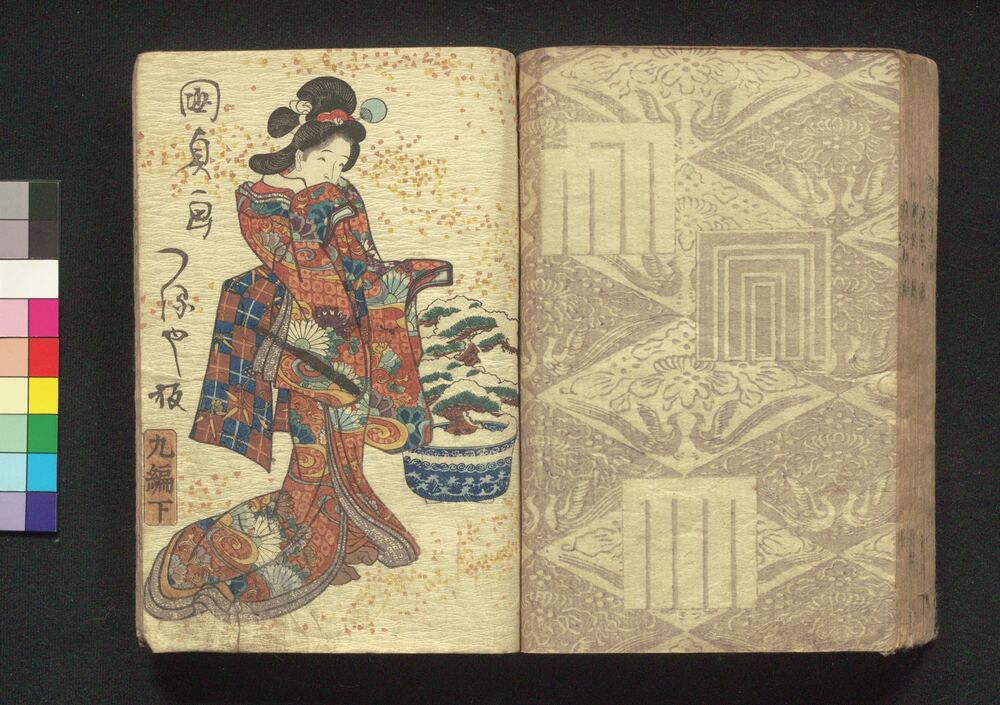 国貞画
つるや板
九編下